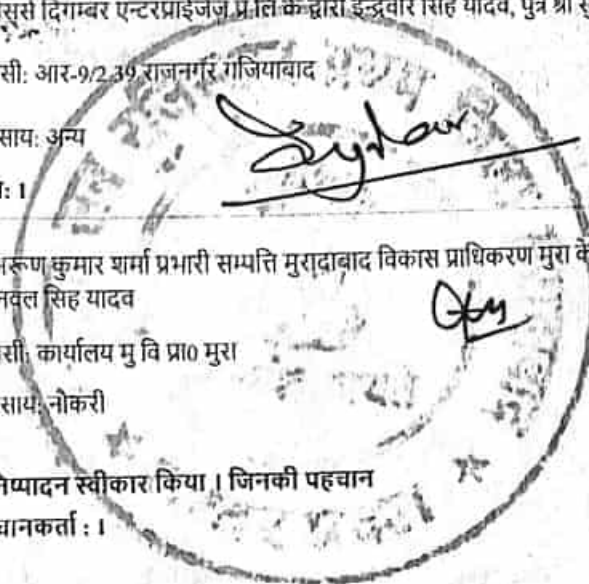 सुर्स दिगम्बर एन्टरप्राईजेज प्र लि के द्वारा इन्द्रवीर सिंह यादव, पुत्र श्री
सी: आर-9/2 39 राजनगर गजियाबाद
साय: अन्य
: 1
अरूण कुमार शर्मा प्रभारी सम्पत्ति मुरादाबाद विकास प्राधिकरण मुरा के
नवल सिह यादव
सी: कार्यालय मु वि प्रा0 मुरा
साय: नोकरी
निष्पादन स्वीकार किया । जिनकी पहचान
चानकर्ता : 1